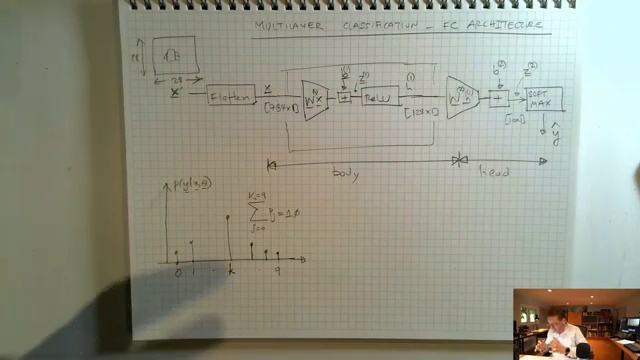 MULTILAYER CLASSIFICATION - FC ARCHITECTURE
28
28
x
Flatten
x
[784x1]
W⁽¹⁾x
b⁽¹⁾
+
z⁽¹⁾
ReLU
h⁽¹⁾
[128x1]
W⁽²⁾h⁽¹⁾
b⁽²⁾
+
z⁽²⁾
[10x1]
SOFT
MAX
ŷ
body
head
K=9
Σ Pj = 1.0
j=0
0 1 k 9